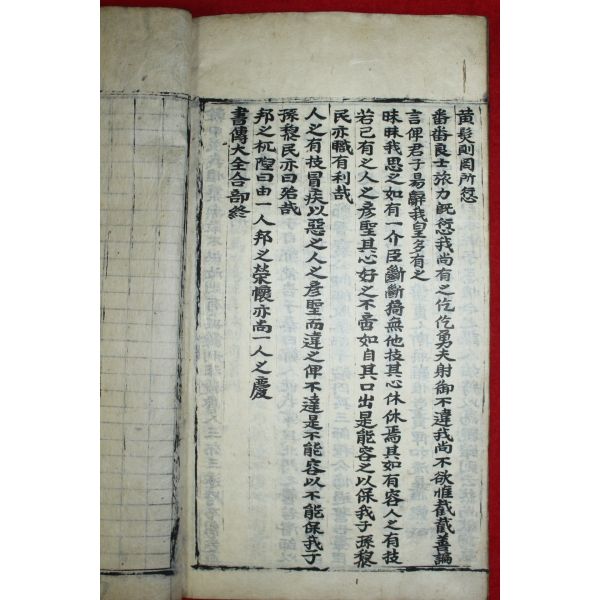 黃髮則罔所愆
番番良士旅力旣愆我尚有之仡仡勇夫射御不違我尚不欲惟截截善諞
言俾君子易辭我皇多有之
昧昧我思之如有一介臣斷斷猗無他技其心休休焉其如有容人之有技
若己有之人之彥聖其心好之不啻如自其口出是能容之以保我子孫黎
民亦職有利哉
人之有技冒疾以惡之人之彥聖而違之俾不達是不能容以不能保我子
孫黎民亦曰殆哉
邦之杌隉曰由一人邦之榮懷亦尚一人之慶
書傳大全合部終